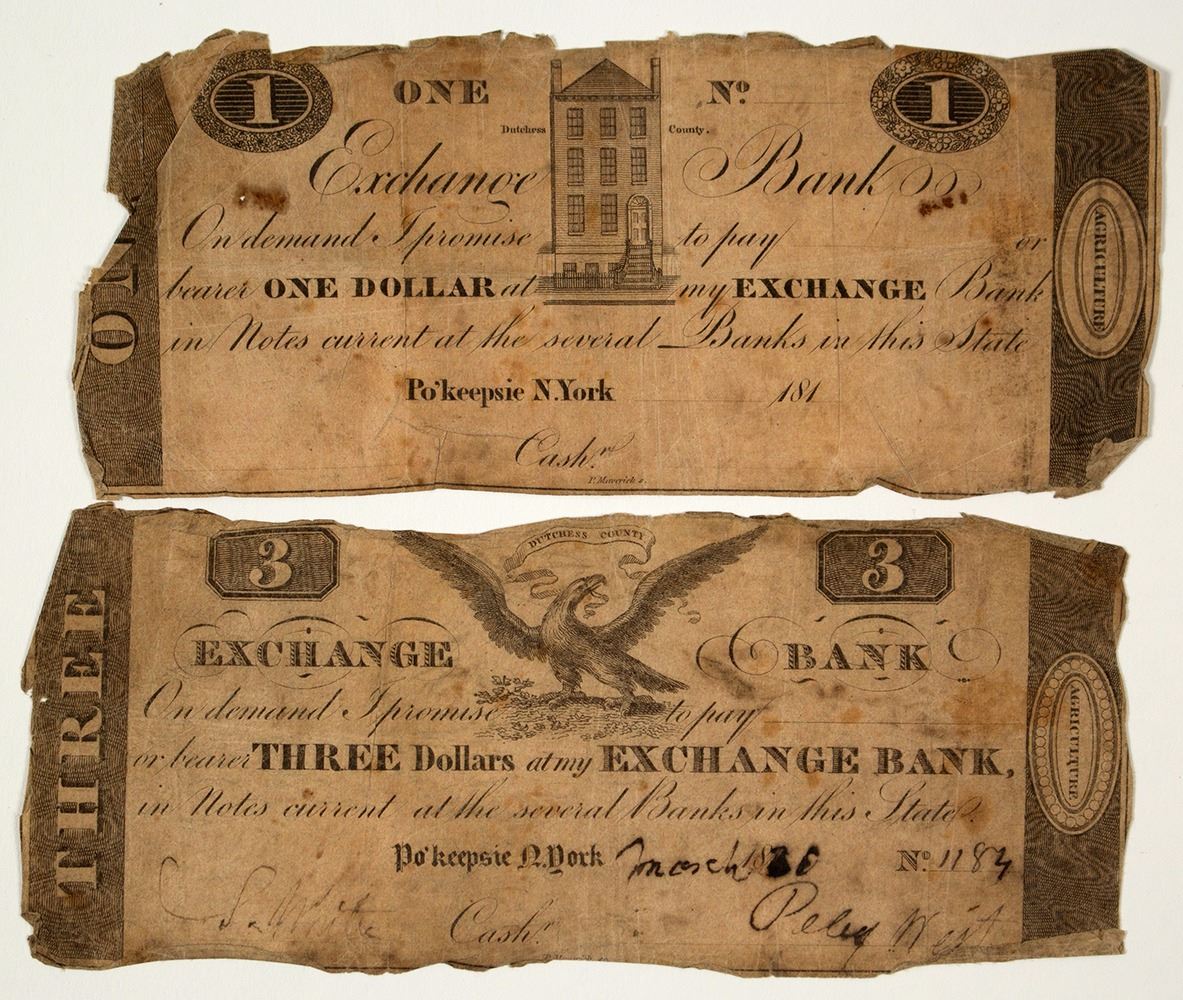 1 ONE Nº 1
Dutchess County.
Exchange Bank
On demand I promise to pay or
bearer ONE DOLLAR at my EXCHANGE Bank
in Notes current at the several Banks in this State
Po'keepsie N.York 181
Cashr.
P. Maverick s.
ONE
AGRICULTURE
DUTCHESS COUNTY
3 3
EXCHANGE BANK
On demand I promise to pay
or bearer THREE Dollars at my EXCHANGE BANK,
in Notes current at the several Banks in this State.
Po'keepsie N.York March 18 Nº 1184
Cashr. Peleg West
THREE
AGRICULTURE